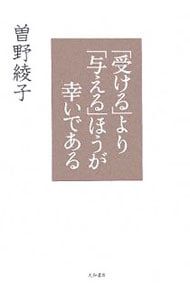 「受ける」より
「与える」ほうが
幸いである
曽野綾子
大和書房